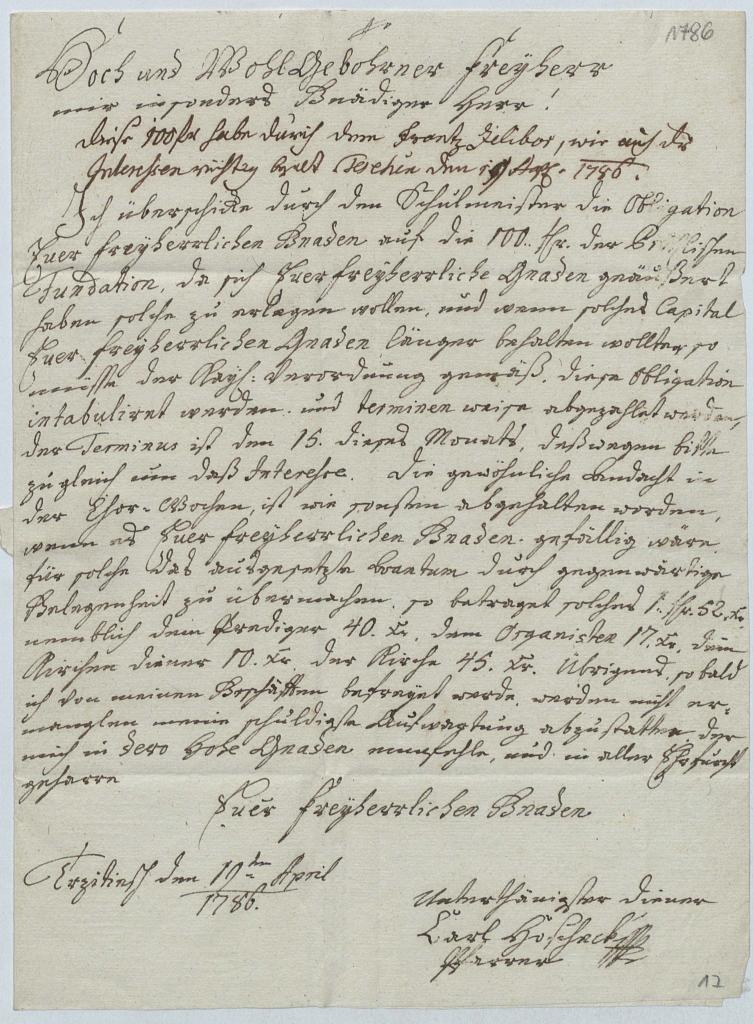 1786
Hoch und WohlGebohrner Freyherr
mir insonders Gnädiger Herr!
Diese 100 fr habe durch dem Frantz, wie auch die
Interessen richtig den 19 1786.
Ich überschicke durch den Schulmeister die Obligation
Euer Freyherrlichen Gnaden auf die 100. fr. der
Fundation, da sich Euer freyherrliche Gnaden geäußert
haben solche zu erlegen wollen, und wenn solches Capital
Euer freyherrlichen Gnaden länger behalten wollten, so
müsse der Kays: Verordnung gemäß, diese Obligation
intabuliret werden, und terminen weise abgezahlet werden,
der Terminus ist den 15. dieses Monats, deßwegen bitte
zugleich um daß Interesse. Die gewöhnliche Andacht in
der Char-Wochen, ist wie sonsten abgehalten worden,
wenn es Euer freyherrlichen Gnaden gefällig wäre
für solche das ausgesetzte Quantum durch gegenwärtige
Gelegenheit zu übermachen, so betraget solches 1. fr. 52. Kr.
nemblich dem Prediger 40. Kr. dem Organisten 17. Kr. dem
Kirchen diener 10. Kr. der Kirche 45. Kr. Übrigens, so bald
ich von meinen Geschäften befreyet werde, werden nicht er-
manglen meine schuldigste Aufwartung abzustatten, der
mich in dero Hohe Gnaden empfehle, und in aller Ehrfurcht
geharre
Euer Freyherrlichen Gnaden
den 19ten April
1786.
Unterthänigster diener
Carl Hoscheck
Pfarrer
17